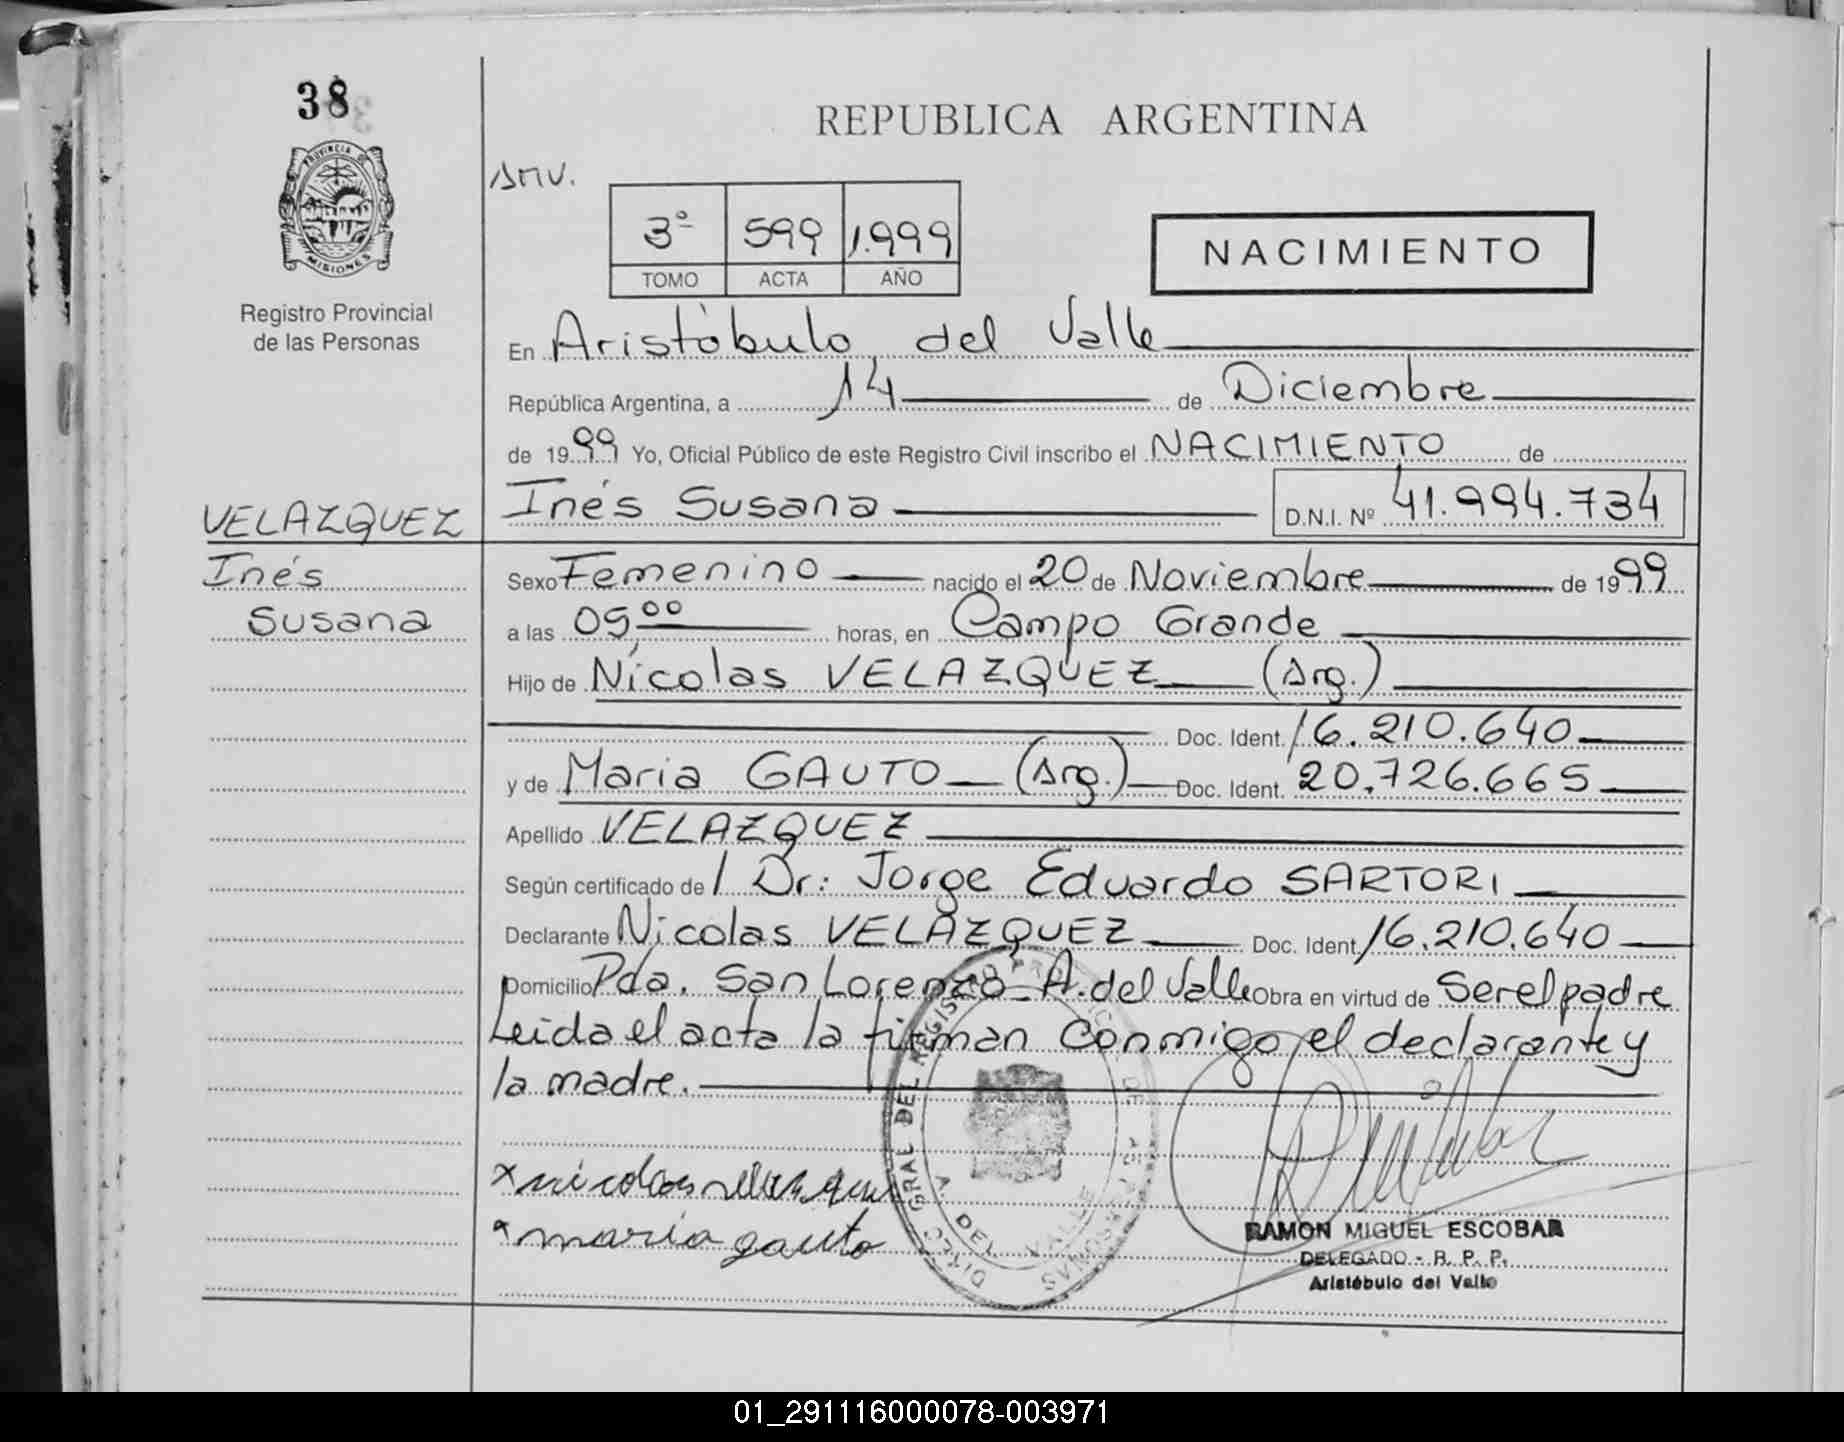 38
PROVINCIA DE
MISIONES
Registro Provincial
de las Personas
REPUBLICA ARGENTINA
3º 599 1.999
TOMO ACTA AÑO
NACIMIENTO
En Aristóbulo del Valle
República Argentina, a 14 de Diciembre
de 1999 Yo, Oficial Público de este Registro Civil inscribo el NACIMIENTO de
VELAZQUEZ
Inés
Susana
Inés Susana D.N.I. Nº 41.994.734
Sexo Femenino nacido el 20 de Noviembre de 1999
a las 05,00 horas, en Campo Grande
Hijo de Nicolas VELAZQUEZ (Arg.)
Doc. Ident. 16.210.640
y de Maria GAUTO (Arg.) Doc. Ident. 20.726.665
Apellido VELAZQUEZ
Según certificado de / Dr: Jorge Eduardo SARTORI
Declarante Nicolas VELAZQUEZ Doc. Ident. 16.210.640
Domicilio Pda. San Lorenzo A. del Valle Obra en virtud de Ser el padre
Leida el acta la firman conmigo el declarante y
la madre.
maria gauto
RAMON MIGUEL ESCOBAR
DELEGADO - R. P. P.
Aristóbulo del Valle
01_291116000078-003971